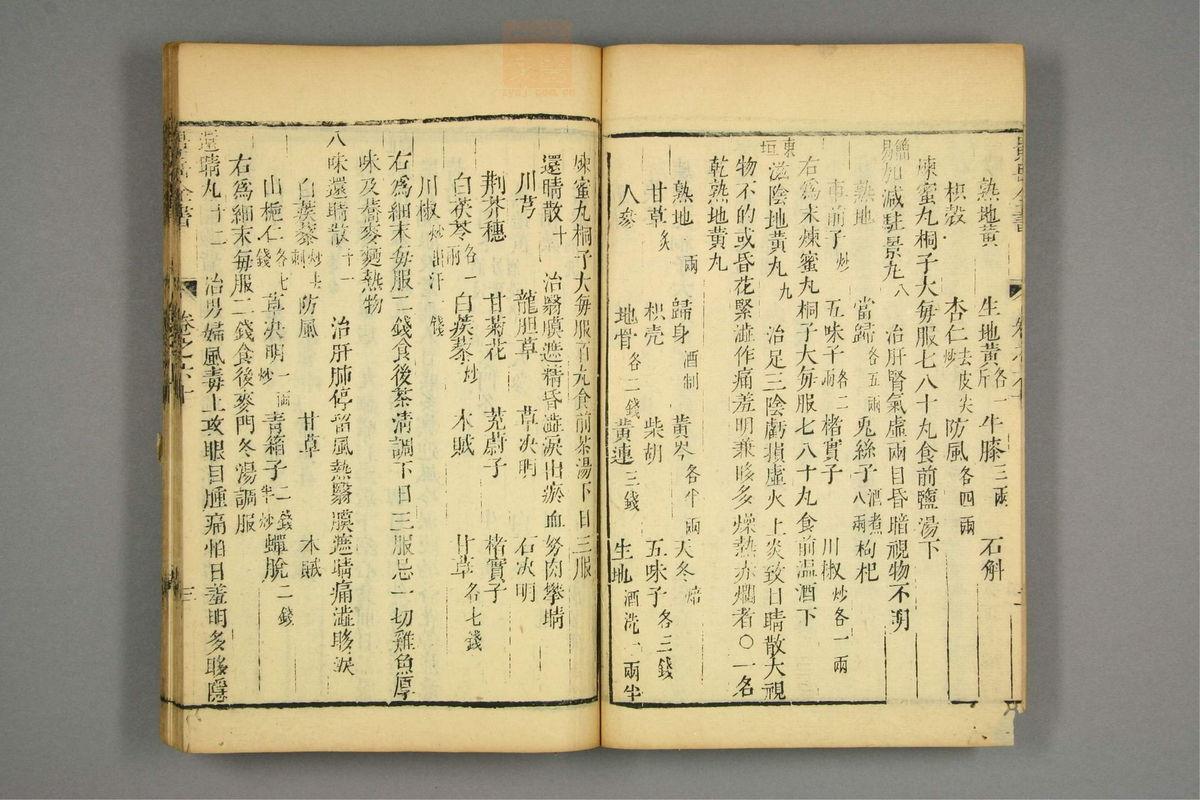 熟地黃 生地黃各一斤 牛膝三兩 石斛
枳殼 杏仁去皮尖炒 防風各四兩
煉蜜丸桐子大每服七八十丸食前鹽湯下
加減駐景丸八 治肝腎氣虛兩目昏暗視物不明
熟地 當歸各五兩 兎絲子酒煮八兩 枸杞
車前子炒 五味子各二兩 楮實子 川椒炒各一兩
右為末煉蜜丸桐子大每服七八十丸食前溫酒下
東垣滋陰地黃丸九 治足三陰虧損虛火上炎致目睛散大視
物不的或昏花緊澁作痛羞明兼眵多燥熱赤爛者○一名
乾熟地黃丸
熟地一兩 歸身酒制 黃芩各半兩 天冬焙
甘草炙 枳壳 柴胡 五味子各三錢
人參 地骨各二錢 黃連三錢 生地酒洗一兩半
煉蜜丸桐子大每服百丸食前茶湯下日三服
還睛散十 治翳膜遮精昏澁淚出瘀血努肉攀睛
川芎 龍胆草 草决明 石决明
荆芥穗 甘菊花 茺蔚子 楮實子
白茯苓各一兩 白蒺藜炒 木賊 甘草各七錢
川椒炒出汗一錢
右為細末每服二錢食後茶清調下日三服忌一切雞魚厚
味及蕎麥麵熱物
八味還睛散十一 治肝肺停留風熱翳膜遮睛痛澁眵淚
白蒺藜炒去刺 防風 甘草 木賊
山梔仁各七錢 草决明一兩炒 青箱子二錢半炒 蟬脫二錢
右為細末每服二錢食後麥門冬湯調服
還睛丸十二 治男婦風毒上攻眼目腫痛怕日羞明多眵隱
卷之六十 三